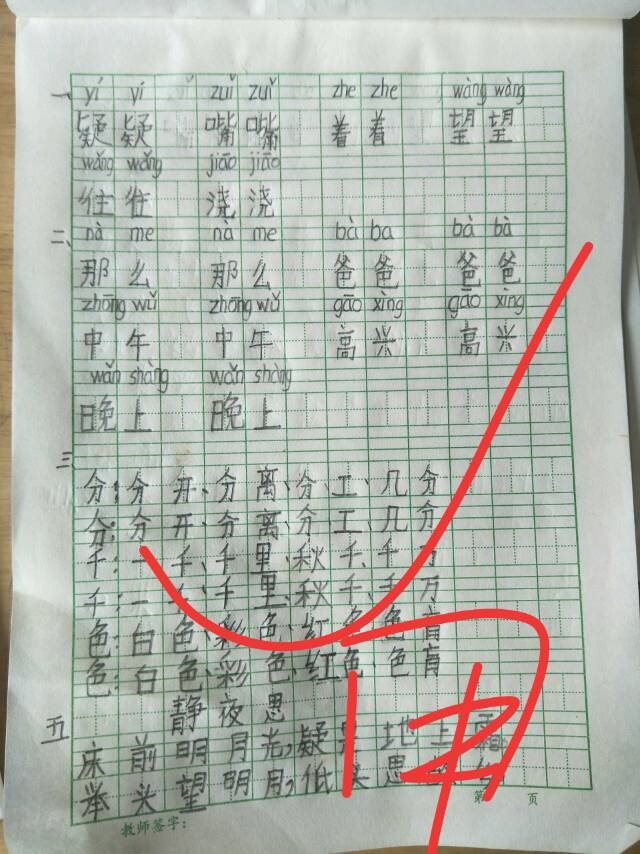 一、yí yí zuǐ zuǐ zhe zhe wàng wàng
疑 疑 嘴 嘴 着 着 望 望
wǎng wǎng jiāo jiāo
往 往 浇 浇
二、nà me nà me bà ba bà bà
那 么 那 么 爸 爸 爸 爸
zhōng wǔ zhōng wǔ gāo xìng gāo xìng
中 午 中 午 高 兴 高 兴
wǎn shàng wǎn shàng
晚 上 晚 上
三、
分:分 开、分 离、分 工、几 分
分:分 开、分 离、分 工、几 分
千:一 千、千 里、秋 千、千 万
千:一 千、千 里、秋 千、千 万
色:白 色、彩 色、红 色、色 盲
色:白 色、彩 色、红 色、色 盲
静 夜 思
五
床 前 明 月 光,疑 是 地 上 霜
举 头 望 明 月,低 头 思
教师签字: 第 页